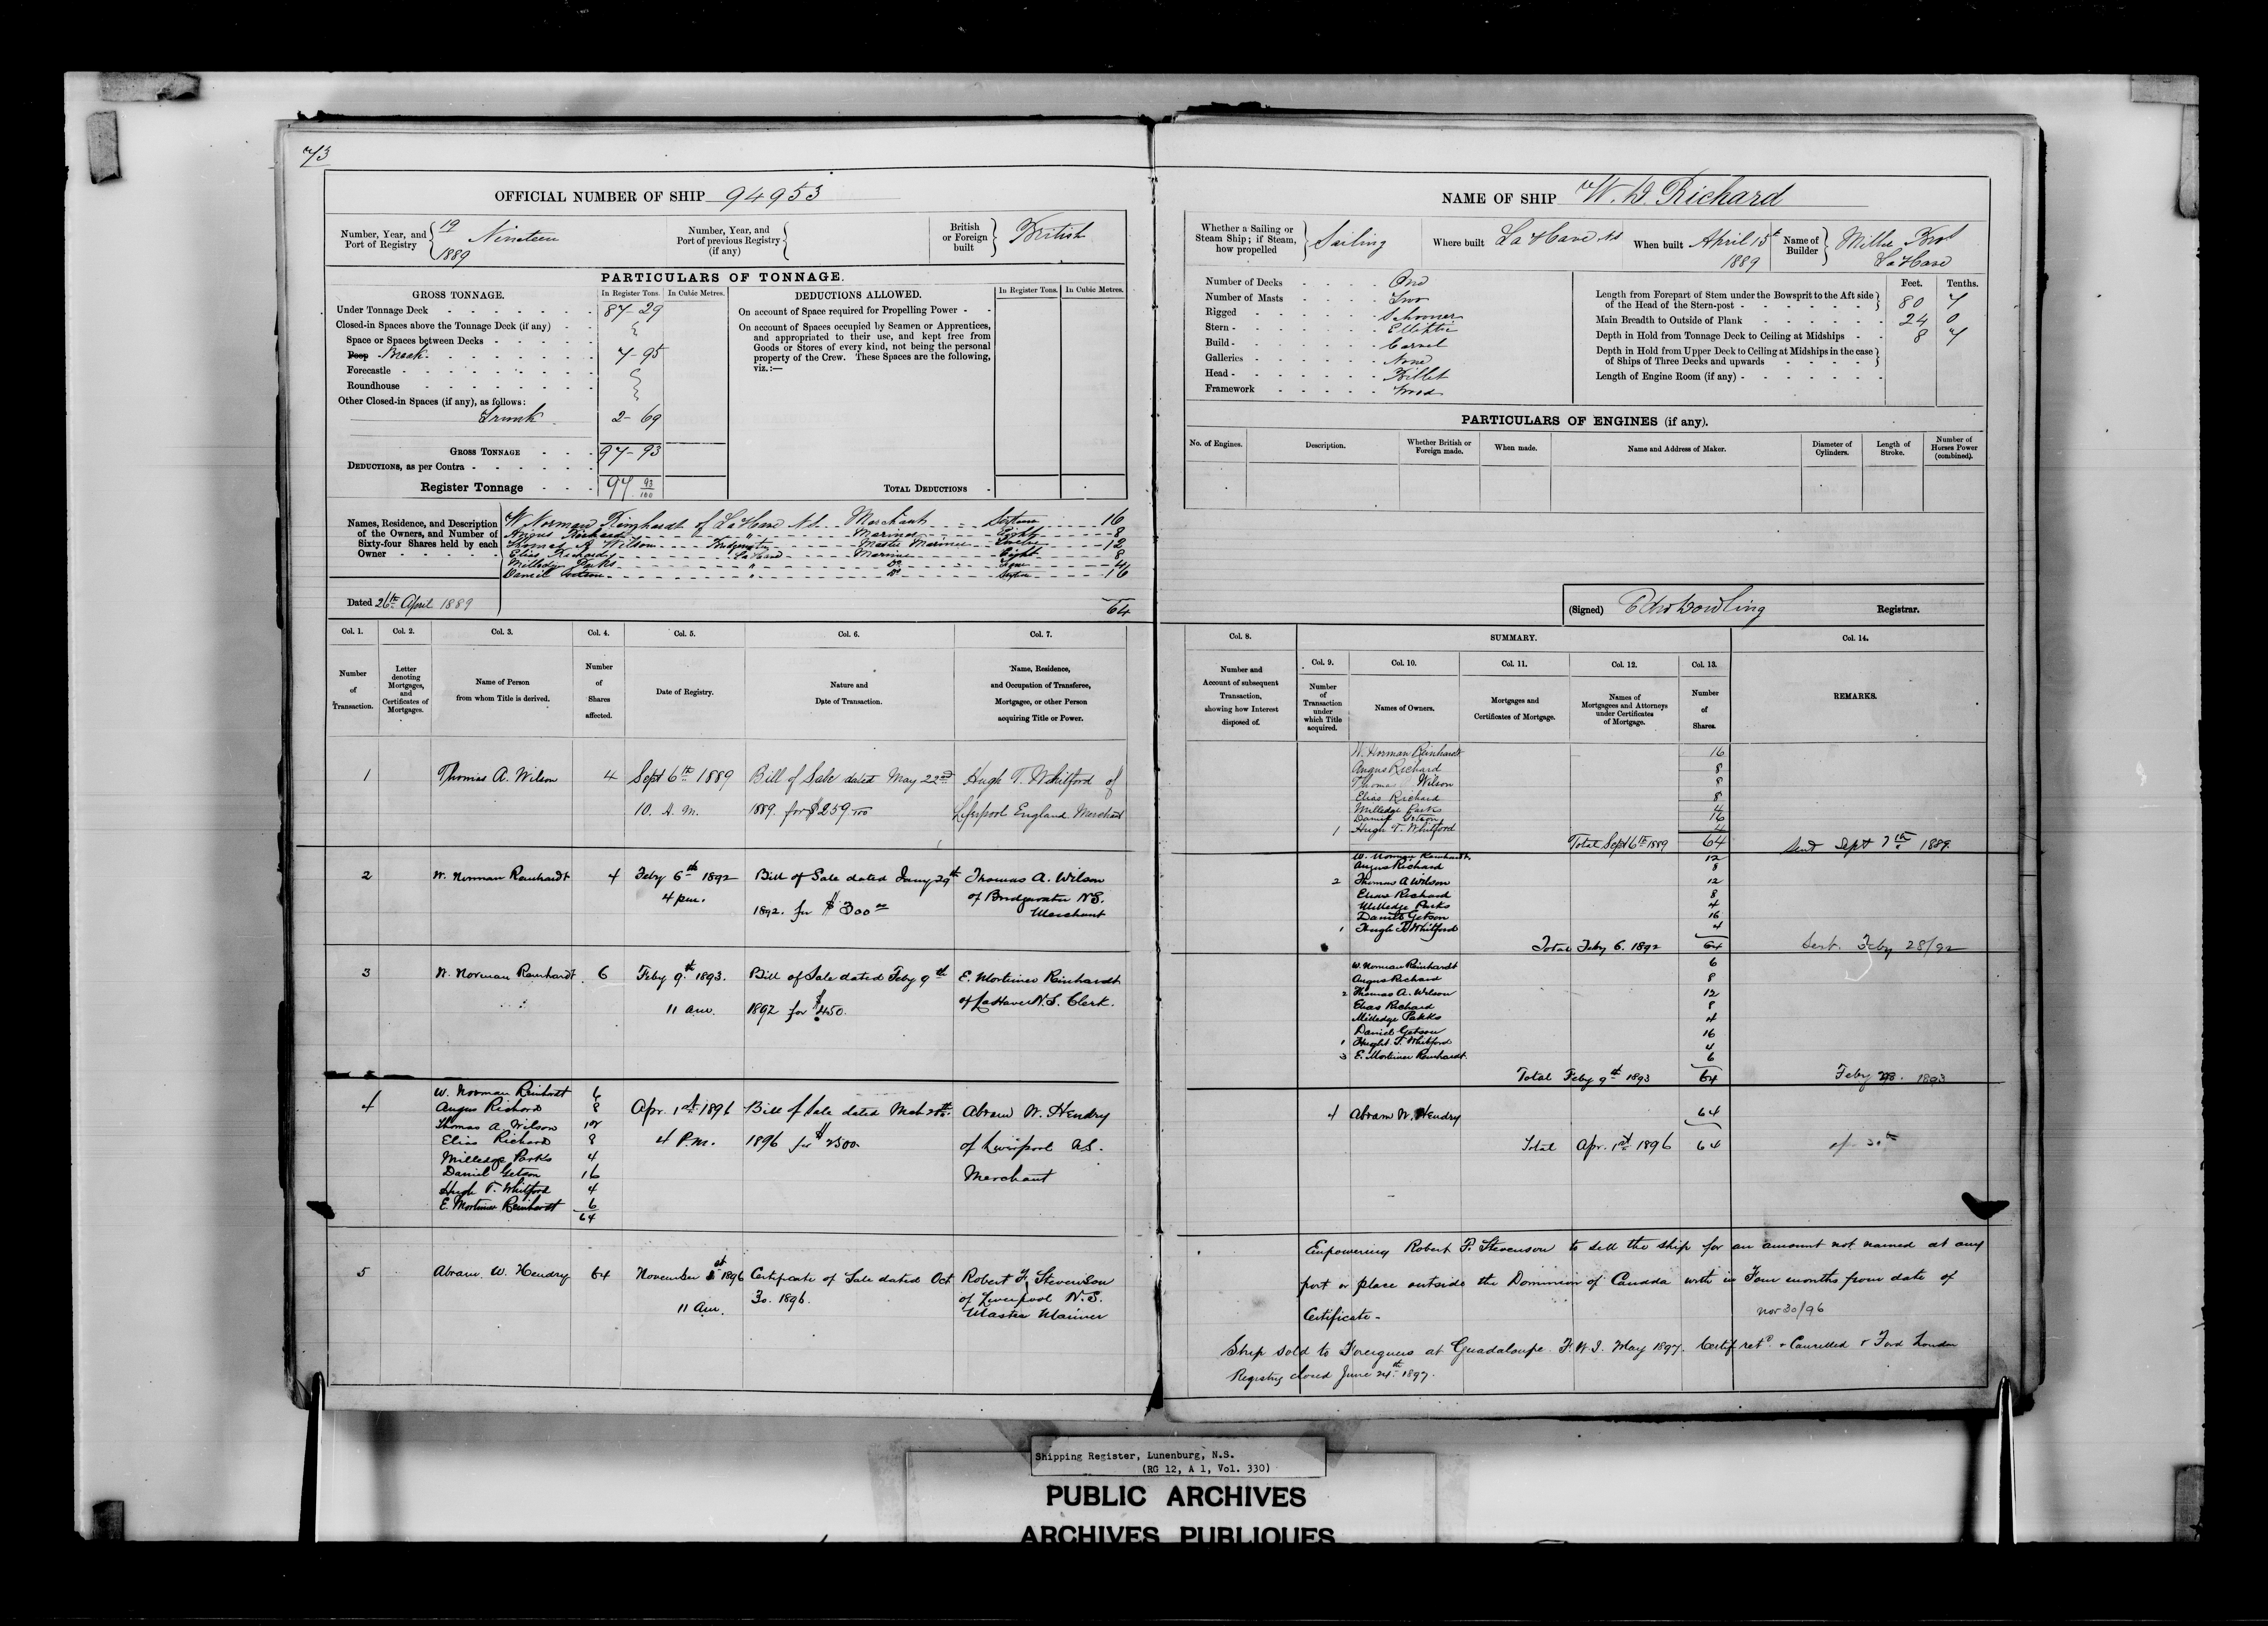 73
OFFICIAL NUMBER OF SHIP 94953
Number, Year, and Port of Registry 19 Nineteen 1889
Number, Year, and Port of previous Registry (if any)
British or Foreign built British
PARTICULARS OF TONNAGE.
GROSS TONNAGE. In Register Tons. In Cubic Metres.
Under Tonnage Deck 87-29
Closed-in Spaces above the Tonnage Deck (if any)
Space or Spaces between Decks
Poop 7-95
Forecastle
Roundhouse
Other Closed-in Spaces (if any), as follows:
Trunk 2-69
GROSS TONNAGE 97-93
DEDUCTIONS, as per Contra
Register Tonnage 97 93/100
DEDUCTIONS ALLOWED. In Register Tons. In Cubic Metres.
On account of Space required for Propelling Power
On account of Spaces occupied by Seamen or Apprentices,
and appropriated to their use, and kept free from
Goods or Stores of every kind, not being the personal
property of the Crew. These Spaces are the following,
viz.:—
TOTAL DEDUCTIONS
Names, Residence, and Description of the Owners, and Number of Sixty-four Shares held by each Owner
W Norman Reinhardt of LaHave N.S. Merchant Sixteen 16
Angus Richard " Mariner Eight 8
Thomas A Wilson Bridgewater Master Mariner Twelve 12
Elias Richard LaHave Mariner Eight 8
Milledge Parks " Do Four 4
Daniel Getson " Do Sixteen 16
Dated 26th April 1889
64
Col. 1. Col. 2. Col. 3. Col. 4. Col. 5. Col. 6. Col. 7.
Number of Transaction.
Letter denoting Mortgages, and Certificates of Mortgages.
Name of Person from whom Title is derived.
Number of Shares affected.
Date of Registry.
Nature and Date of Transaction.
Name, Residence, and Occupation of Transferee, Mortgagee, or other Person acquiring Title or Power.
1 Thomas A. Wilson 4 Sept 6th 1889 Bill of Sale dated May 22nd Hugh T. Whitford of
10. A. M. 1889. for $259 Liverpool England Merchant
2 W. Norman Reinhardt 4 Feby 6th 1892 Bill of Sale dated Jany 29th Thomas A. Wilson
4 pm. 1892. for $300 00 of Bridgewater N.S.
Merchant
3 W. Norman Reinhardt 6 Feby 9th 1893. Bill of Sale dated Feby 9th E. Mortimer Reinhardt
11 am. 1892 for $450. of LaHave N.S. Clerk.
W. Norman Reinhardt 6
4 Angus Richard 8 Apr. 1st 1896 Bill of Sale dated Mch Abram W. Hendry
Thomas A. Wilson 12
Elias Richard 8 4 P.M. 1896 for $2500 of Liverpool N.S.
Milledge Parks 4
Daniel Getson 16 Merchant
Hugh T. Whitford 4
E. Mortimer Reinhardt 6
64
5 Abram. W. Hendry 64 November 1896 Certificate of Sale dated Oct Robert F. Stevenson
11 Am. 30. 1896. of Liverpool N.S.
Master Mariner
NAME OF SHIP W. D. Richard
Whether a Sailing or Steam Ship; if Steam, how propelled Sailing
Where built LaHave NS
When built April 15th 1889
Name of Builder LaHave
Number of Decks One
Number of Masts Two
Rigged Schooner
Stern Elliptic
Build Carvel
Galleries None
Head Billet
Framework Wood
Feet. Tenths.
Length from Forepart of Stem under the Bowsprit to the Aft side of the Head of the Stern-post 80 7
Main Breadth to Outside of Plank 24 0
Depth in Hold from Tonnage Deck to Ceiling at Midships 8 7
Depth in Hold from Upper Deck to Ceiling at Midships in the case of Ships of Three Decks and upwards
Length of Engine Room (if any)
PARTICULARS OF ENGINES (if any).
No. of Engines. Description. Whether British or Foreign made. When made. Name and Address of Maker. Diameter of Cylinders. Length of Stroke. Number of Horses Power (combined).
(Signed) Edw Dowling Registrar.
Col. 8. SUMMARY. Col. 14.
Col. 9. Col. 10. Col. 11. Col. 12. Col. 13.
Number and Account of subsequent Transaction, showing how Interest disposed of.
Number of Transaction under which Title acquired.
Names of Owners.
Mortgages and Certificates of Mortgage.
Names of Mortgagees and Attorneys under Certificates of Mortgage.
Number of Shares.
REMARKS.
W. Norman Reinhardt 16
Angus Richard 8
Thomas Wilson 8
Elias Richard 8
Milledge Parks 4
Daniel Getson 16
1 Hugh T. Whitford 4
Total Sept 6th 1889 64 Sent Sept 7th 1889.
W. Norman Reinhardt 12
Angus Richard 8
2 Thomas A Wilson 12
Elias Richard 8
Milledge Parks 4
Daniel Getson 16
1 Hugh T. Whitford 4
Total Feby 6. 1892 64 Sent. Feby 28/92
W. Norman Reinhardt 6
Angus Richard 8
2 Thomas A. Wilson 12
Elias Richard 8
Milledge Parks 4
Daniel Getson 16
1 Hugh T. Whitford 4
3 E. Mortimer Reinhardt 6
Total Feby 9th 1893 64 Feby 28. 1893
4 Abram W. Hendry 64
Total Apr. 1st 1896 64 30th
Empowering Robert F. Stevenson to sell the ship for an amount not named at any
port or place outside the Dominion of Canada with in Four months from date of
Certificate. Nov 30/96
Ship sold to Foreigners at Guadaloupe F.W.I. May 1897. Certif retd & Cancelled & Ford London
Registry closed June 24th 1897.
Shipping Register, Lunenburg, N.S.
(RG 12, A 1, Vol. 330)
PUBLIC ARCHIVES
ARCHIVES PUBLIQUES